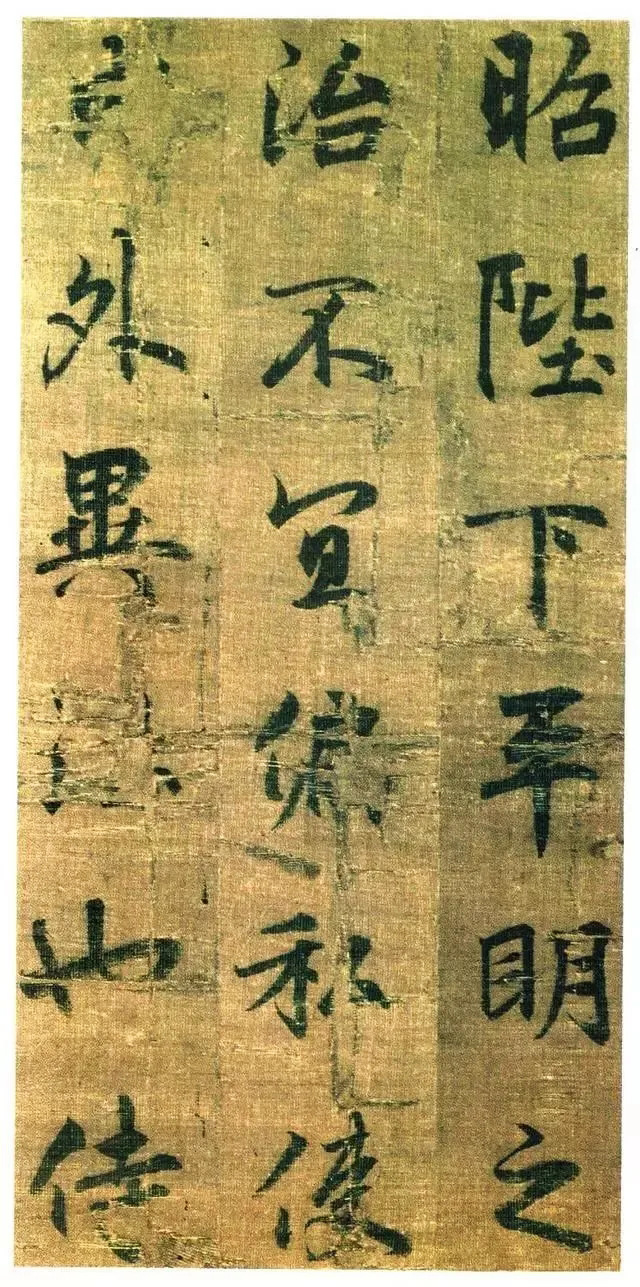 昭陛下平明之
治不宜偏私使
外異也侍